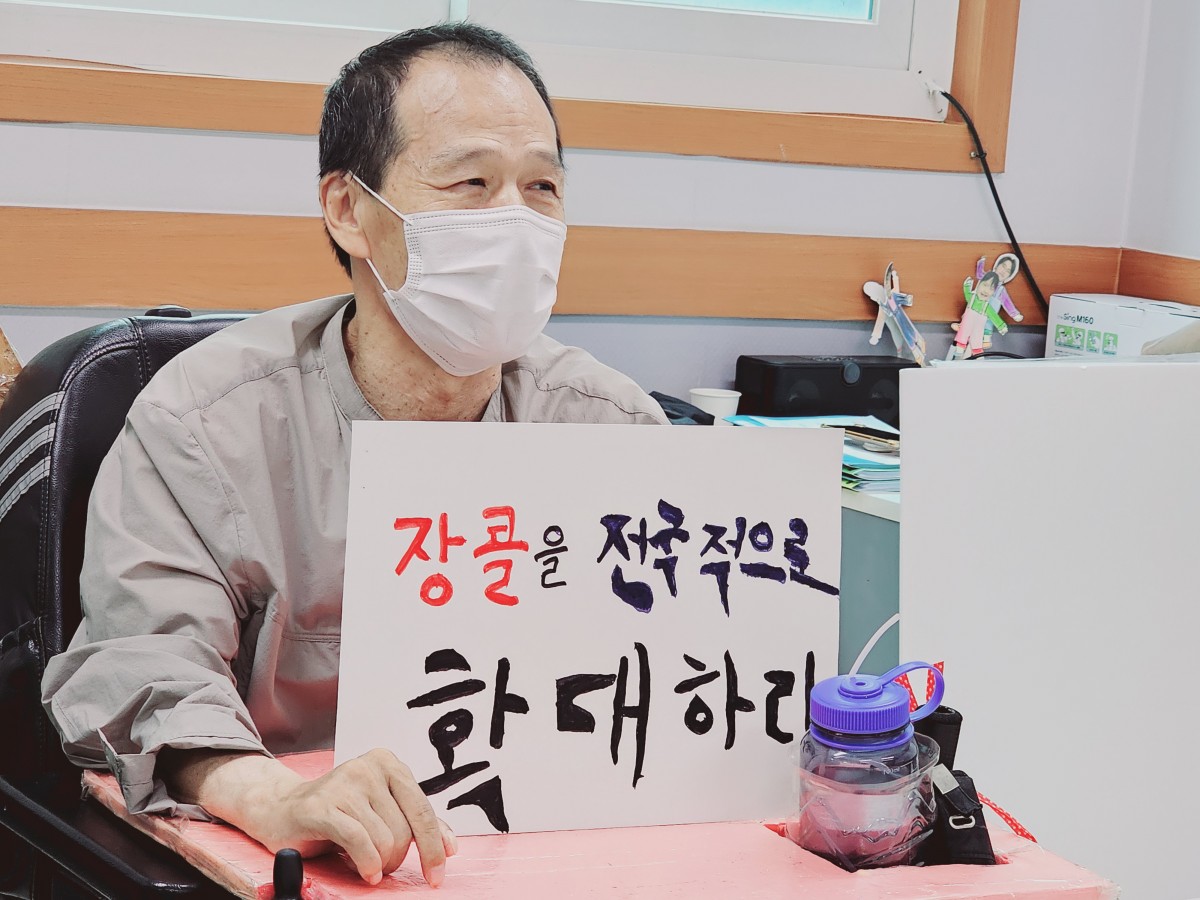 장콜을 전국적으로
확대하라
Sing M160